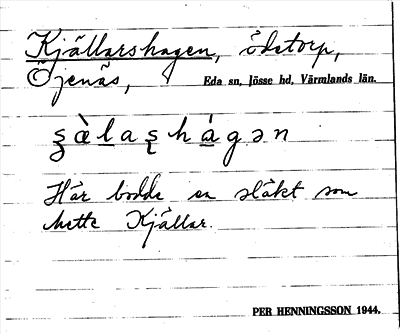 Kjällarshagen, ödetorp,
Öjenäs, Eda sn, Jösse hd, Värmlands län.
Här bodde en släkt som
hette Kjällar.
PER HENNINGSSON 1944.